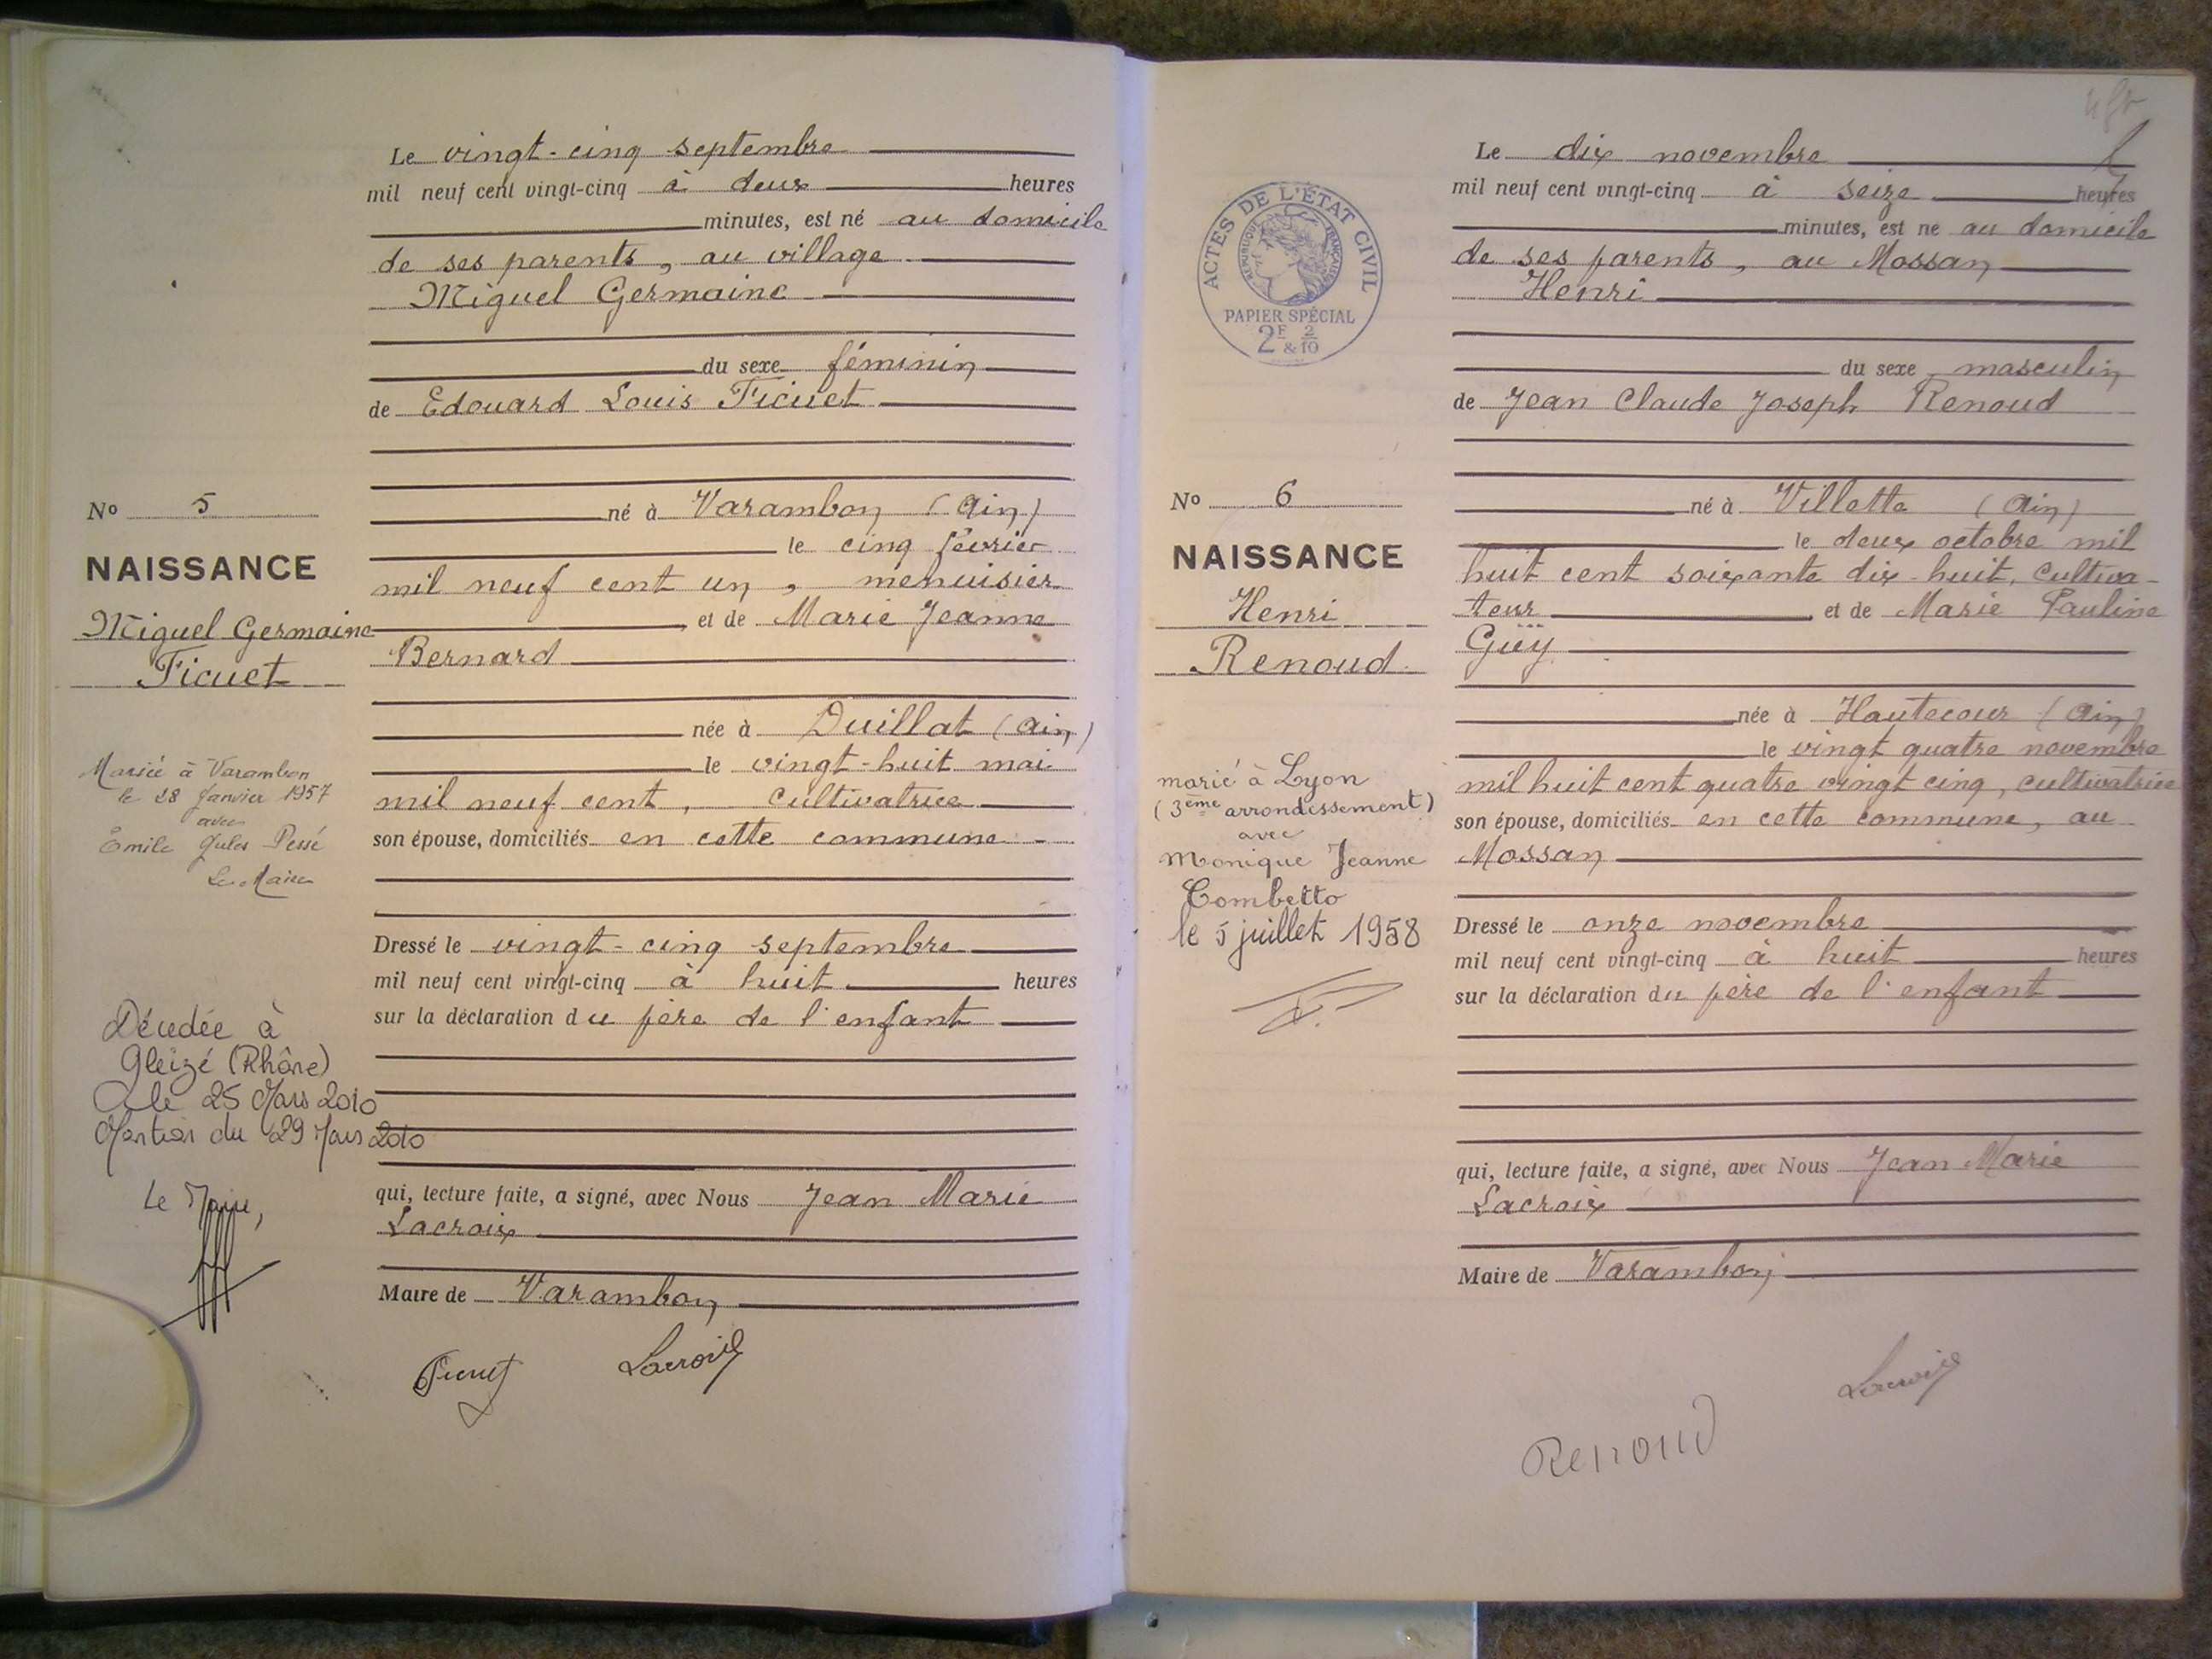 Le vingt-cinq septembre
mil neuf cent vingt-cinq à deux heures
minutes, est né au domicile
de ses parents, au village
Miguel Germaine
du sexe féminin
de Edouard Louis Ficuet
né à Varambon (Ain)
le cinq février
mil neuf cent un, menuisier
et de Marie Jeanne
Bernard
née à Druillat (Ain)
le vingt-huit mai
mil neuf cent, cultivatrice
son épouse, domiciliés en cette commune
Dressé le vingt-cinq septembre
mil neuf cent vingt-cinq à huit heures
sur la déclaration du père de l'enfant
qui, lecture faite, a signé, avec Nous Jean Marie
Lacroix
Maire de Varambon
Ficuet Lacroix
No 5
NAISSANCE
Miguel Germaine
Ficuet
Mariée à Varambon
le 28 Janvier 1957
avec
Emile Jules Pessé
Le Maire
Décédée à
Gleizé (Rhône)
le 25 Mars 2010
Mention du 29 Mars 2010
Le Maire,
Le dix novembre
mil neuf cent vingt-cinq à seize heures
minutes, est né au domicile
de ses parents, au Mossan
Henri
du sexe masculin
de Jean Claude Joseph Renoud
né à Villette (Ain)
le deux octobre mil
huit cent soixante dix-huit, cultiva-
teur et de Marie Pauline
Guÿ
née à Hautecour (Ain)
le vingt quatre novembre
mil huit cent quatre vingt cinq, cultivatrice
son épouse, domiciliés en cette commune, au
Mossan
Dressé le onze novembre
mil neuf cent vingt-cinq à huit heures
sur la déclaration du père de l'enfant
qui, lecture faite, a signé, avec Nous Jean Marie
Lacroix
Maire de Varambon
Lacroix
Renoud
ACTES DE L'ÉTAT CIVIL
RÉPUBLIQUE FRANÇAISE
PAPIER SPÉCIAL
2F & 2/10
No 6
NAISSANCE
Henri
Renoud
marié à Lyon
(3ème arrondissement)
avec
Monique Jeanne
Combetto
le 5 juillet 1958